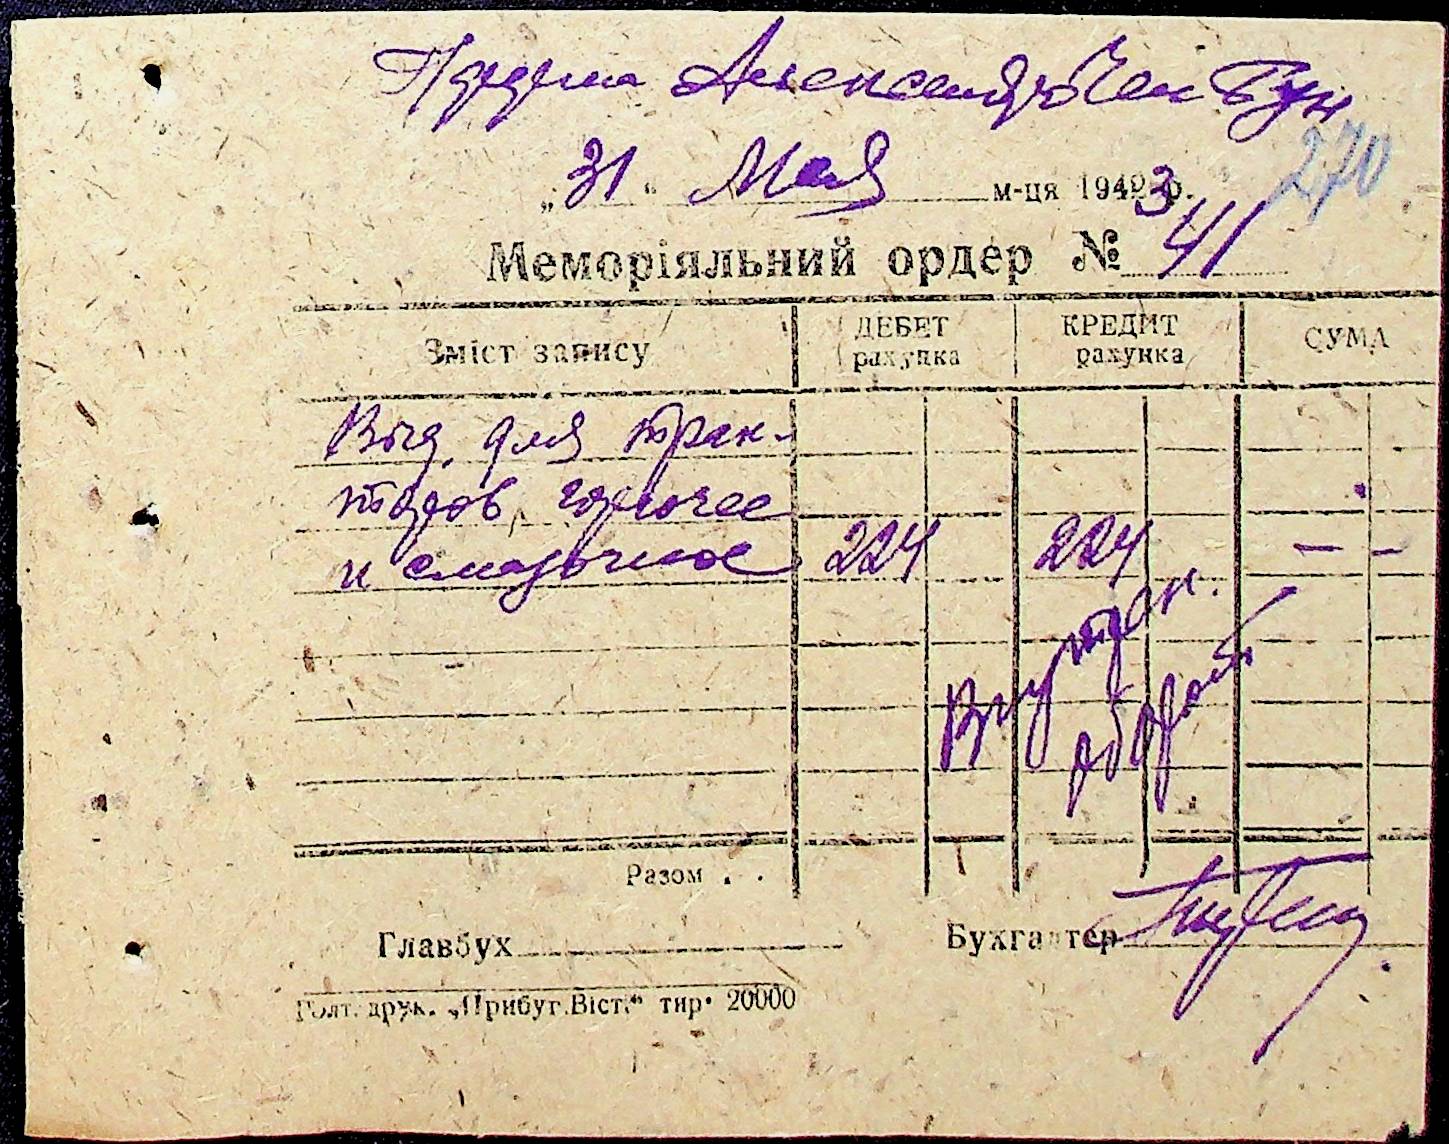 270
„31“ Мая м-ця 1943 р.
Меморіяльний ордер № 41
Зміст запису ДЕБЕТ рахунка КРЕДИТ рахунка СУМА
Выд. для трак-
торов горючее
и смазочное 224 224 — —
Внутрен.
оборот
Разом . .
Главбух Бухгалтер
Голт. друк. „Прибуг.Віст.“ тир. 20000